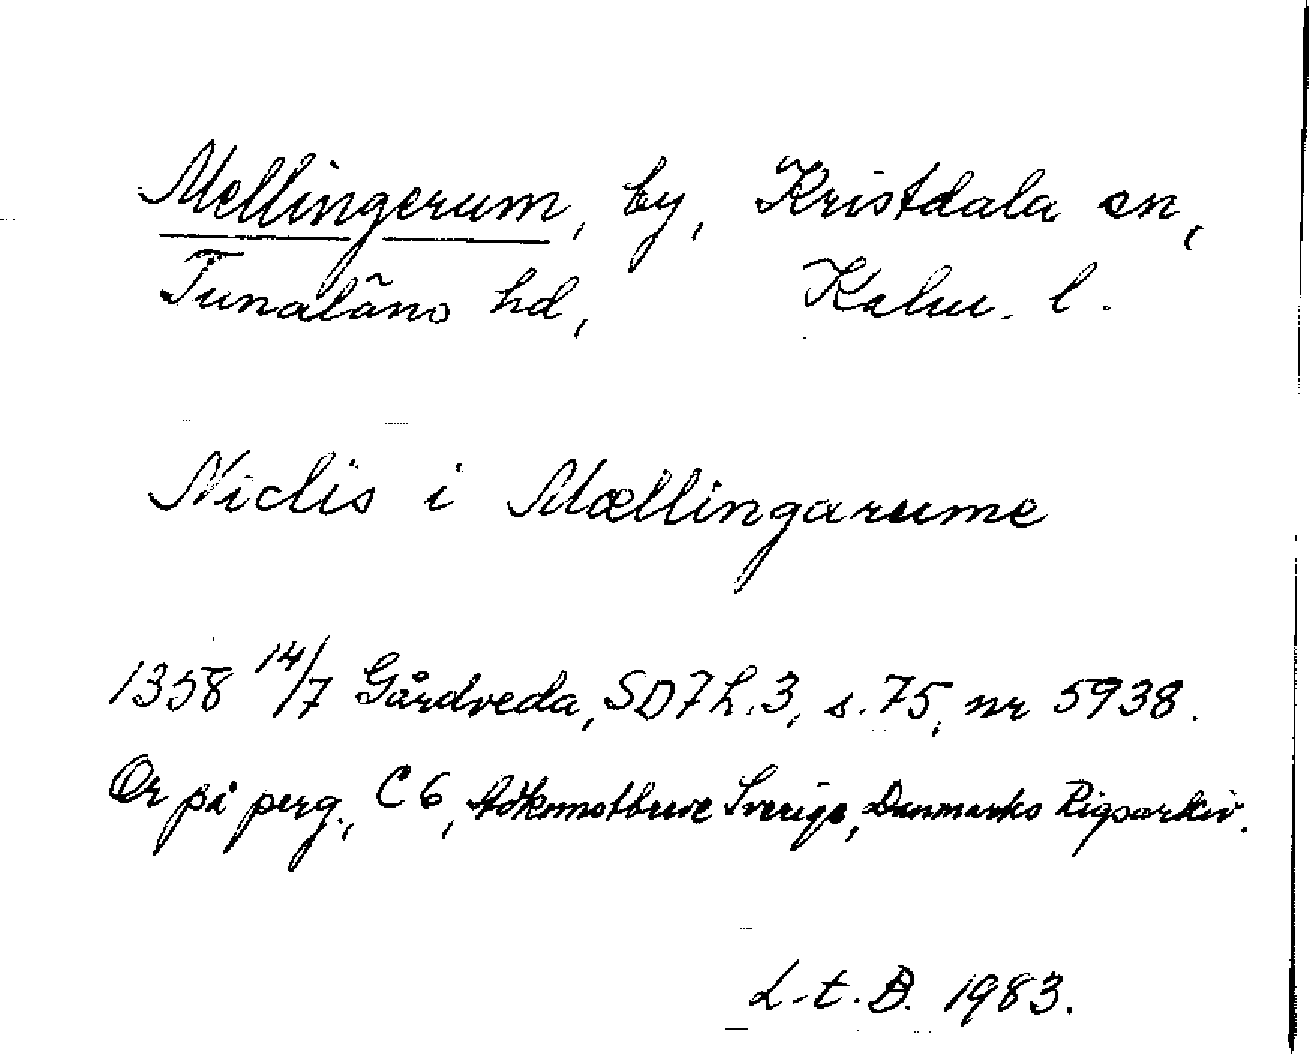 Mellingerum, by, Kristdala sn,
Tunaläns hd, Kalm. l.
Niclis i Mællingarume
1358 14/7 Gårdveda, SD7 h.3, s.75, nr 5938.
Or på perg., C6, Adkomstbreve Sverige, Danmarks Rigsarkiv.
L.t.D. 1983.